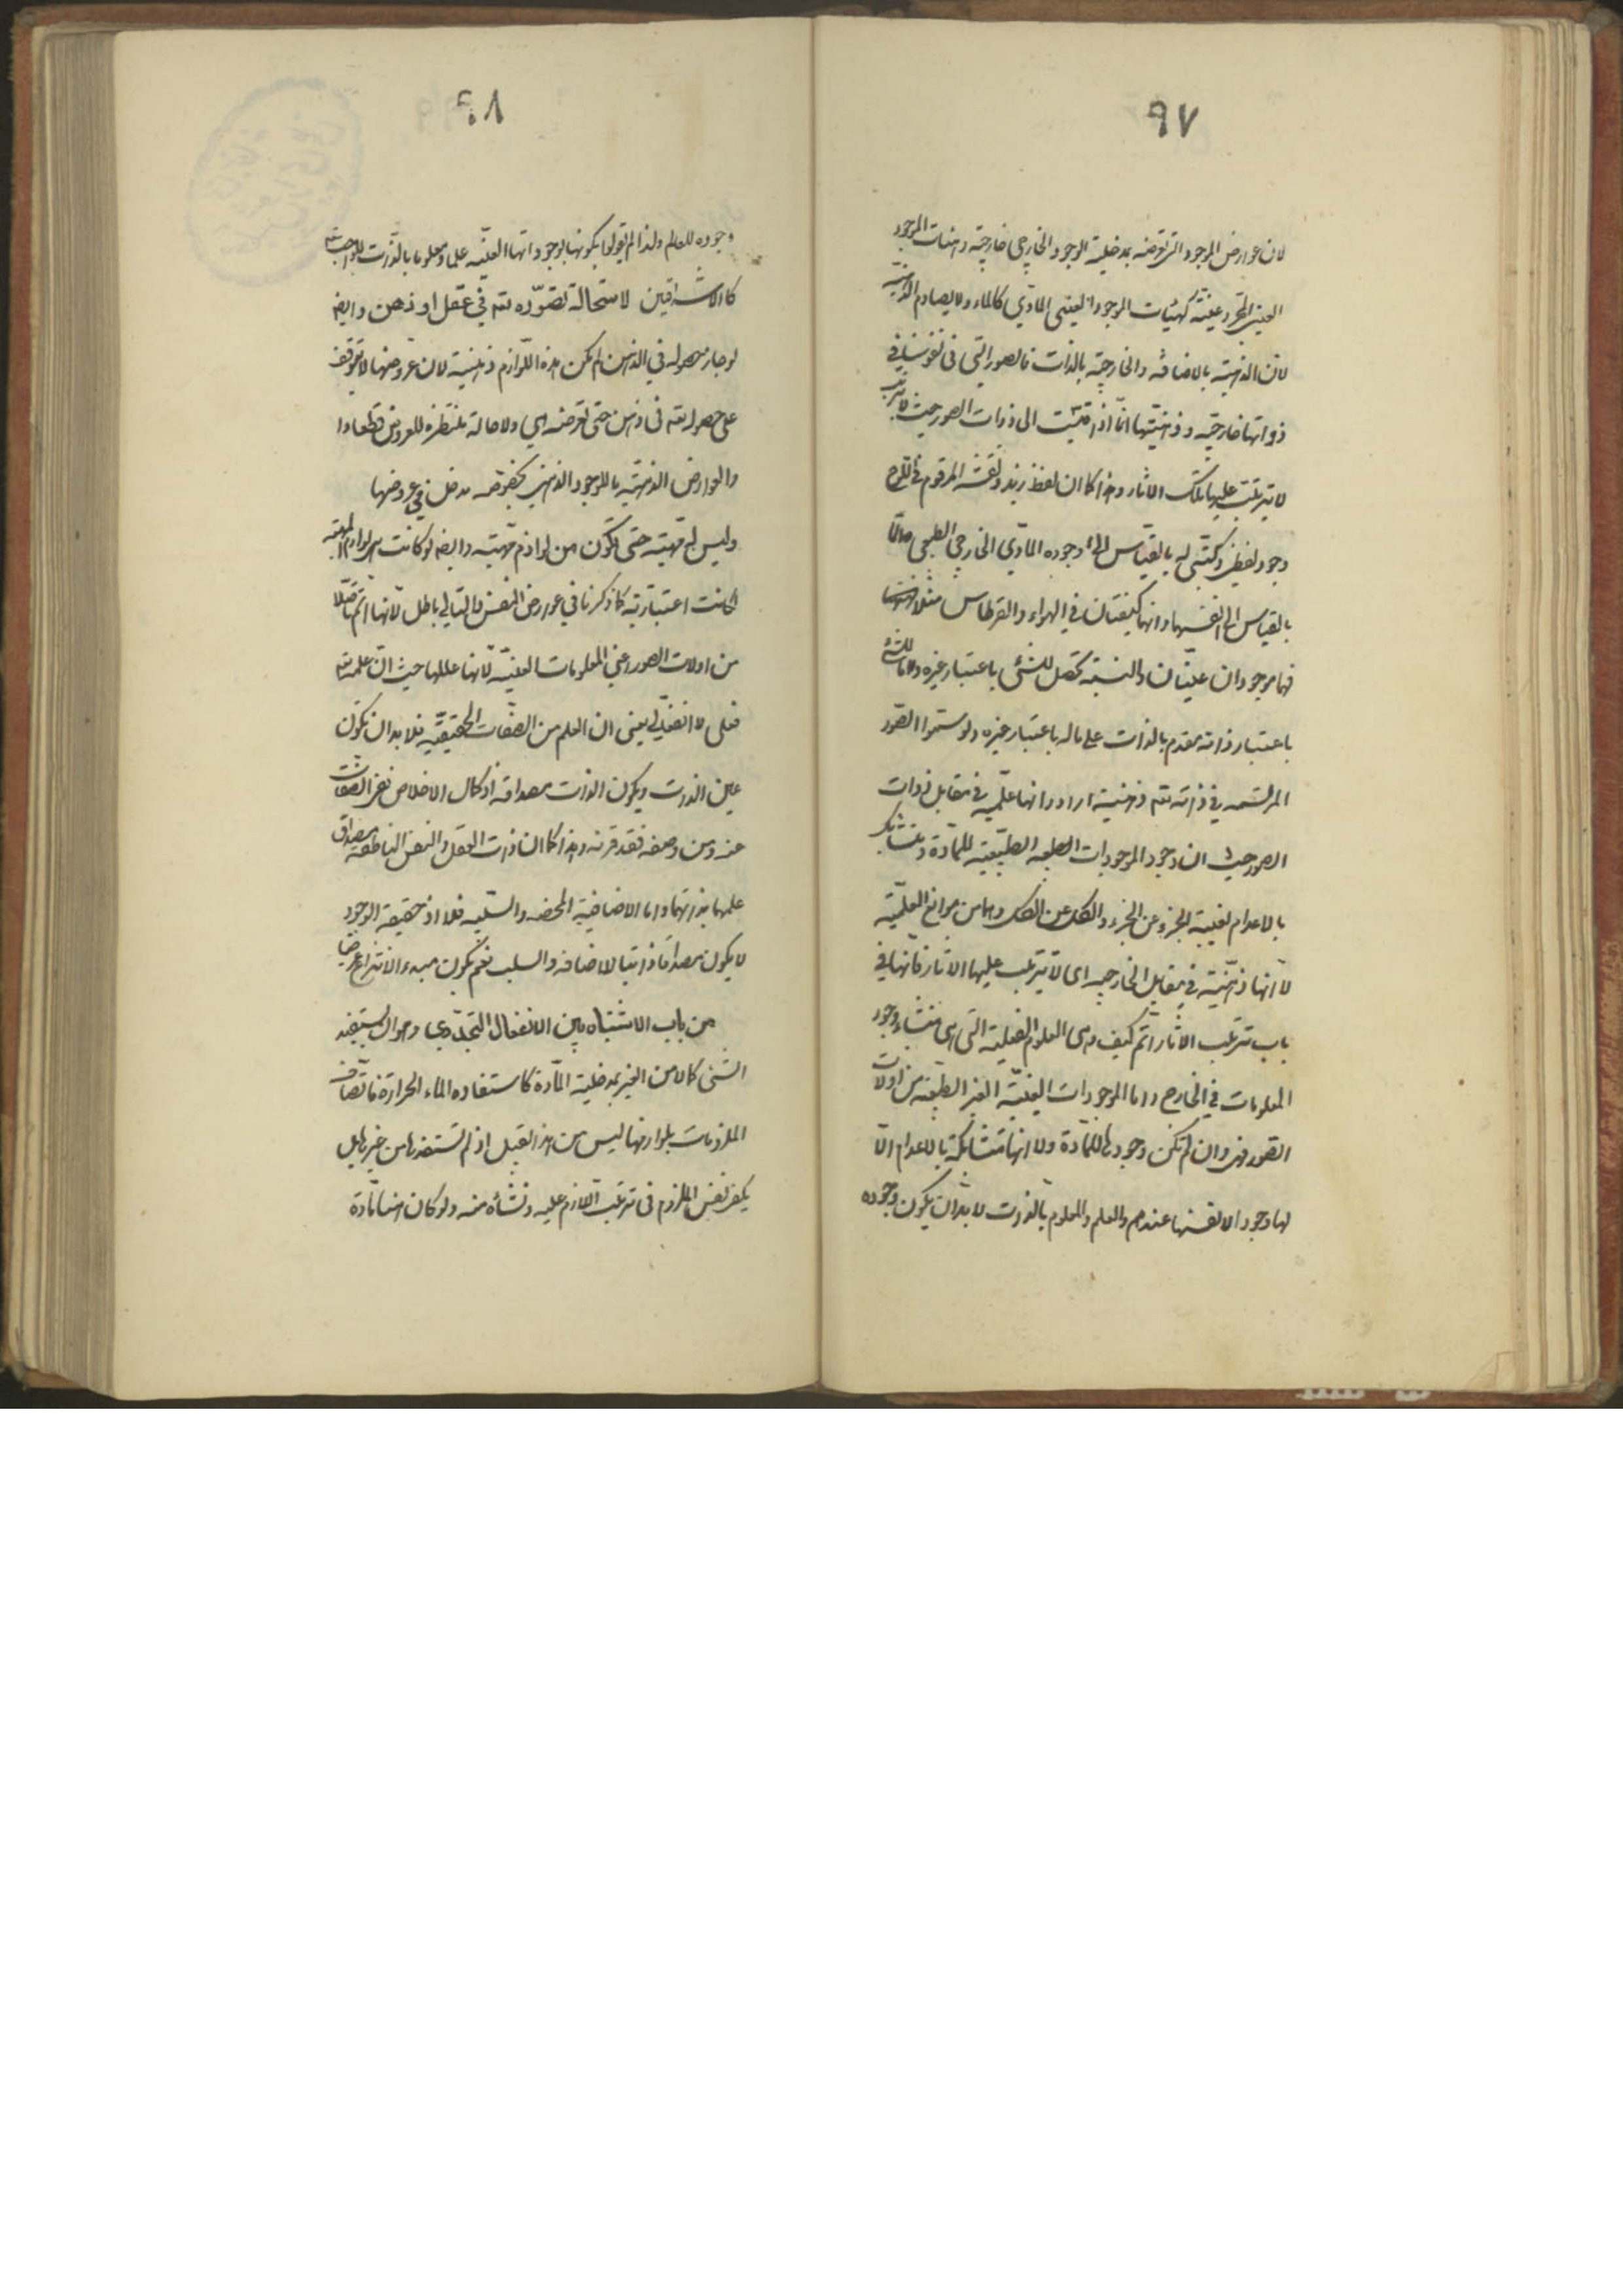 ٩٧
لان عوارض الموجود التى تعرضه بمدخلية الوجود الخارجى خارجية وهيئات الموجود
العينى المجرد عينية كهيئات الموجود العينى المادّي كالماء ولا يصادم الذهنية
لان الذهنية بالاضافة والخارجية بالذات فالصور التى فى نفوسنا فى
ذواتها خارجية وذهنيتها انما اذا قيست الى ذوات الصور حيث لا يترتب
لا يترتب عليها تلك الاثار وهذا كما ان لفظ زيد ونقشه المرقوم فى اللوح
وجود لفظى وكتبى له بالقياس الى وجوده المادّي الخارجى الطبيعى وامّا
بالقياس الى انفسهما وانهما كيفيتان فى الهواء والقرطاس مثلا
فهما موجودان عينيان والنسبة تحصل للشئ باعتبار غيره وما للشئ
باعتبار ذاته مقدم بالذات على ماله باعتبار غيره ولو سموا الصور
المرتسمه فى ذاته تعه ذهنية ارادوا انها علمية فى مقابل ذوات
الصور حيث ان وجود الموجودات الطبيعية للمادّة ومتشابك
بالاعدام لغيبة الجزء عن الجزء والكل عن الكل وهما من موانع العلميّة
لا انها ذهنية فى مقابل الخارجيه اى لا يترتب عليها الاثار فانها فى
باب ترتب الاثار اتم كيف وهى العلوم الفعلية التى هى منشاء وجود
المعلومات فى الخارج واما الموجودات العينيّة الغير الطبيعية من اولات
الصور فهى وان لم تكن وجودها للمادّة ولا انها متشابكة بالاعدام الّا
لها وجود الا لانفسها عندهم والعلم والمعلوم بالذات لا بد ان يكون وجوده
٩٨
وجوده للعالم ولذا لم يقولوا بكونها بوجوداتها العينيّه علما ومعلوما بالذات للواجب تعه
كالاشراقيين لاستحالة تصوّره تعه فى عقل او ذهن وايضا
لو جاز حصوله فى الذهن لم يكن هذه اللّوازم ذهنية لان عروضها لا يتوقف
على حصوله تعه فى ذهن حتى تعرضه هى ولا حالة منتظرة للعروض قطعا
والعوارض الذهنيّه ما للوجود الذهنى بخصوصه مدخل فى عروضها
وليس له مهيّة حتى تكون من لوازم مهيّته وايضا لو كانت من لوازم المهيّة
لكانت اعتبارية كما ذكرنا فى عوارض النفس والتالى باطل لانها اتمّ تاصّلا
من اولات الصور اعنى المعلومات العينيّة لانها عللها حيث انّ علمه تعه
فعلى لا انفعالى يعنى ان العلم من الصفات الحقيقيّه فلا بد ان تكون
عين الذات ويكون الذات مصداقه اذ كمال الاخلاص نفى الصفات
عنه ومن وصفه فقد قرنه وهذا كما ان ذات العقل والنفس الناطقه مصداق
علمهما بذاتهما واما الاضافية المحضه والسلبيه فلا اذ حقيقة الوجود
لا يكون مصداقا ذاتيا لاضافة والسلب نعم يكون مبدء الانتزاع عرضا
من باب الاشتباه بين الانفعال التجدّدى وهو ان يستفيد
الشئ كمالا من الغير بمدخلية المادّة كاستفاده الماء الحرارة فاتّصاف
الملزومات بلوازمها ليس من هذا القبيل اذ لم تستفدها من غيرها بل
يكفى نفس الملزوم فى ترتب اللازم عليه ونشأه منه ولو كان هنا مادّة